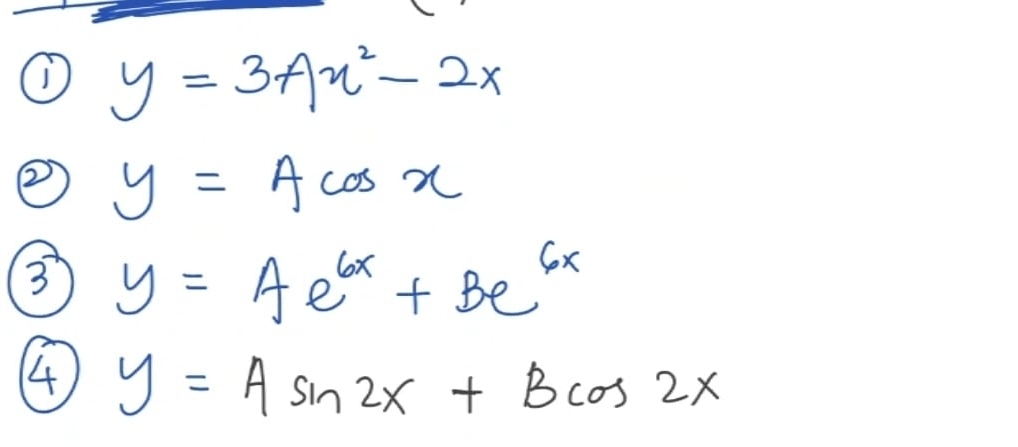 ① y = 3Ax² - 2x
② y = A cos x
③ y = Ae^{6x} + Be^{6x}
④ y = A sin 2x + B cos 2x